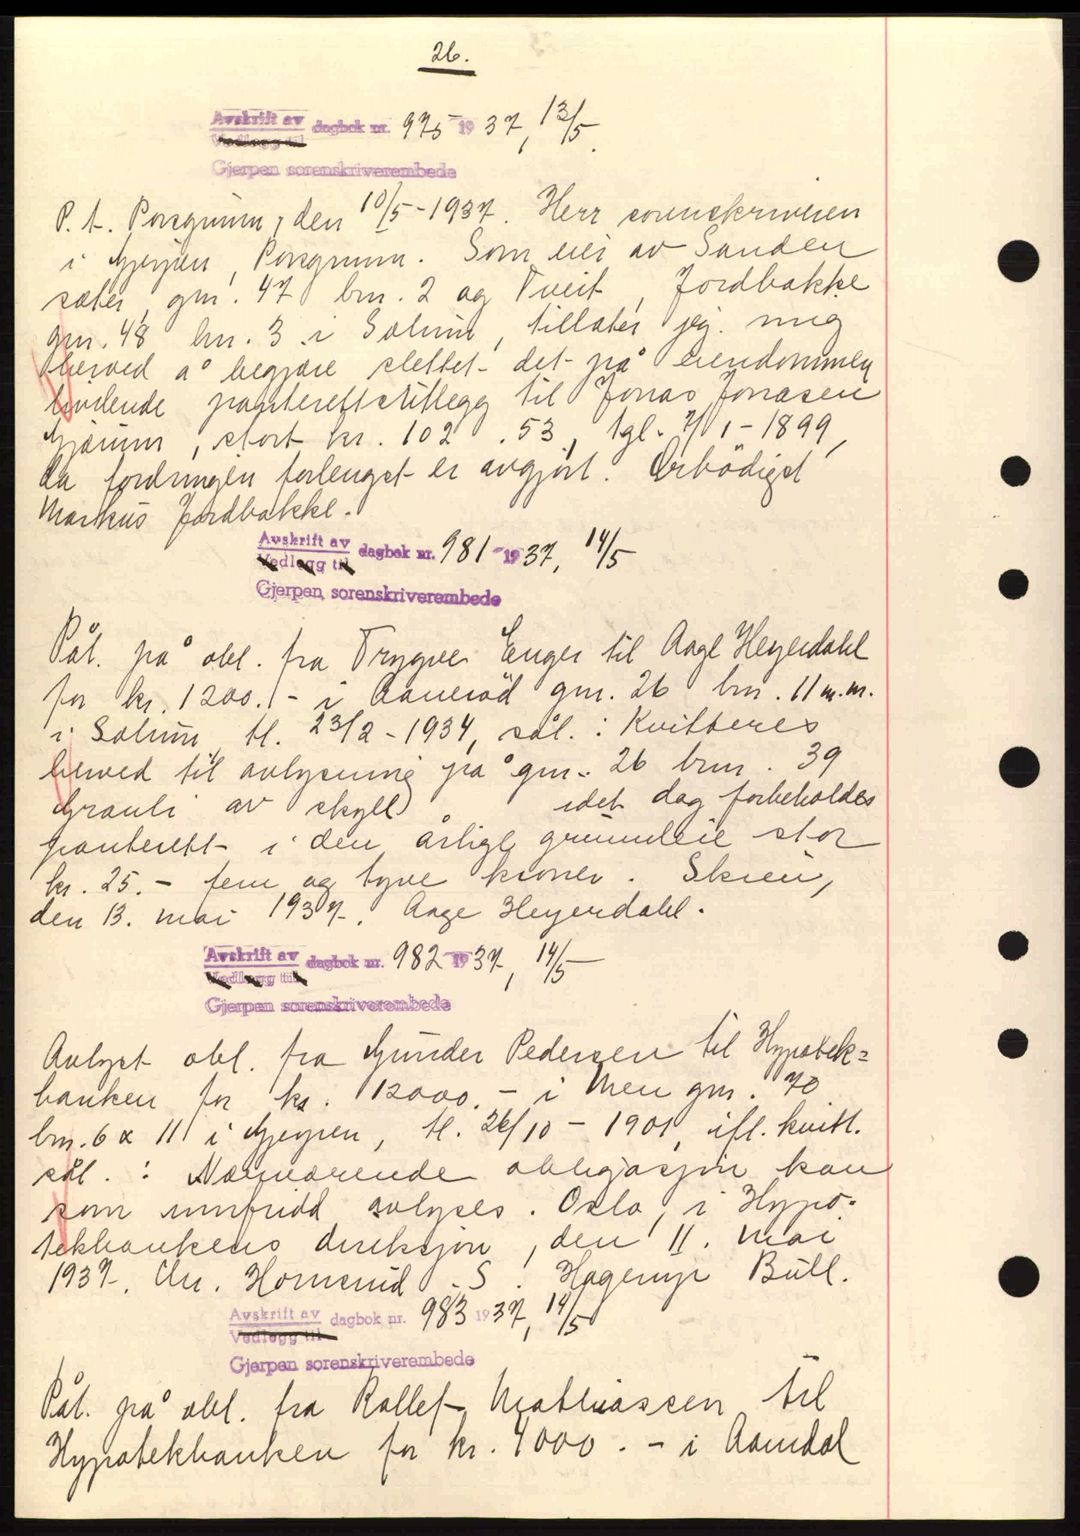 26.
Avskrift av
Vedlegg til dagbok nr. 975 1937, 13/5.
Gjerpen sorenskriverembede
P.t. Porsgrunn, den 10/5-1937. Herr sorenskriveren
i Gjerpen, Porsgrunn. Som eier av Sanden
sæter, gnr. 47 bnr. 2 og Tveit, Jordbakke
gnr. 48 bnr. 3 i Solum, tillater jeg mig
herved å begjære slettet det på eiendommen
hvilende panterettsutlegg til Jonas Jonasen
Gjærum, stort kr. 102.53, tgl. 7/1-1899,
da fordringen forlengst er avgjort. Ærbødigst
Markus Jordbakke.
Avskrift av
Vedlegg til dagbok nr. 981 1937, 14/5
Gjerpen sorenskriverembede
Påt. på obl. fra Trygve Enger til Aage Heyerdahl
for kr. 1200.- i Aanerød gnr. 26 bnr. 11 m.m.
i Solum, tl. 23/2-1934, sål.: Kvitteres
herved til avlysning på gnr. 26 bnr. 39
Granli av skyld idet dog forbeholdes
panterett i den årlige grunnleie stor
kr. 25.- fem og tyve kroner. Skien,
den 13. mai 1937. Aage Heyerdahl.
Avskrift av
Vedlegg til dagbok nr. 982 1937, 14/5
Gjerpen sorenskriverembede
Avlyst obl. fra Gunder Pedersen til Hypotek=
banken for kr. 12000.- i Men gnr. 70
bnr. 6 & 11 i Gjerpen, tl. 26/10-1901, ifl. kvitt.
sål.: Nærværende obligasjon kan
som innfridd avlyses. Oslo, i Hypo-
tekbankens direksjon, den 11. mai
1937. Chr. Hornsrud. S. Hagerup Bull.
Avskrift av
Vedlegg til dagbok nr. 983 1937, 14/5
Gjerpen sorenskriverembede
Påt. på obl. fra Rollef Mathiassen til
Hypotekbanken for kr. 4000.- i Aamdal